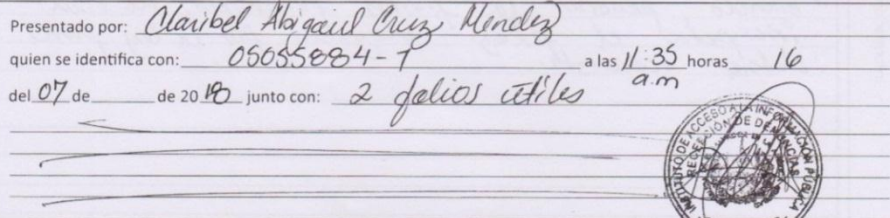 Presentado por: Claribel Abigail Cruz Mendez
quien se identifica con: 05055884-7 a las 11:35 horas 16
a.m
del 07 de de 20 18 junto con: 2 folios utiles
INSTITUTO DE ACCESO A LA INFORMACIÓN PÚBLICA
RECEPCIÓN DE DENUNCIAS